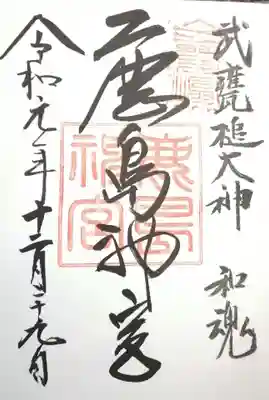 武甕槌大神 和魂
鹿島神宮
鹿島
神宮
令和元年十二月二十九日